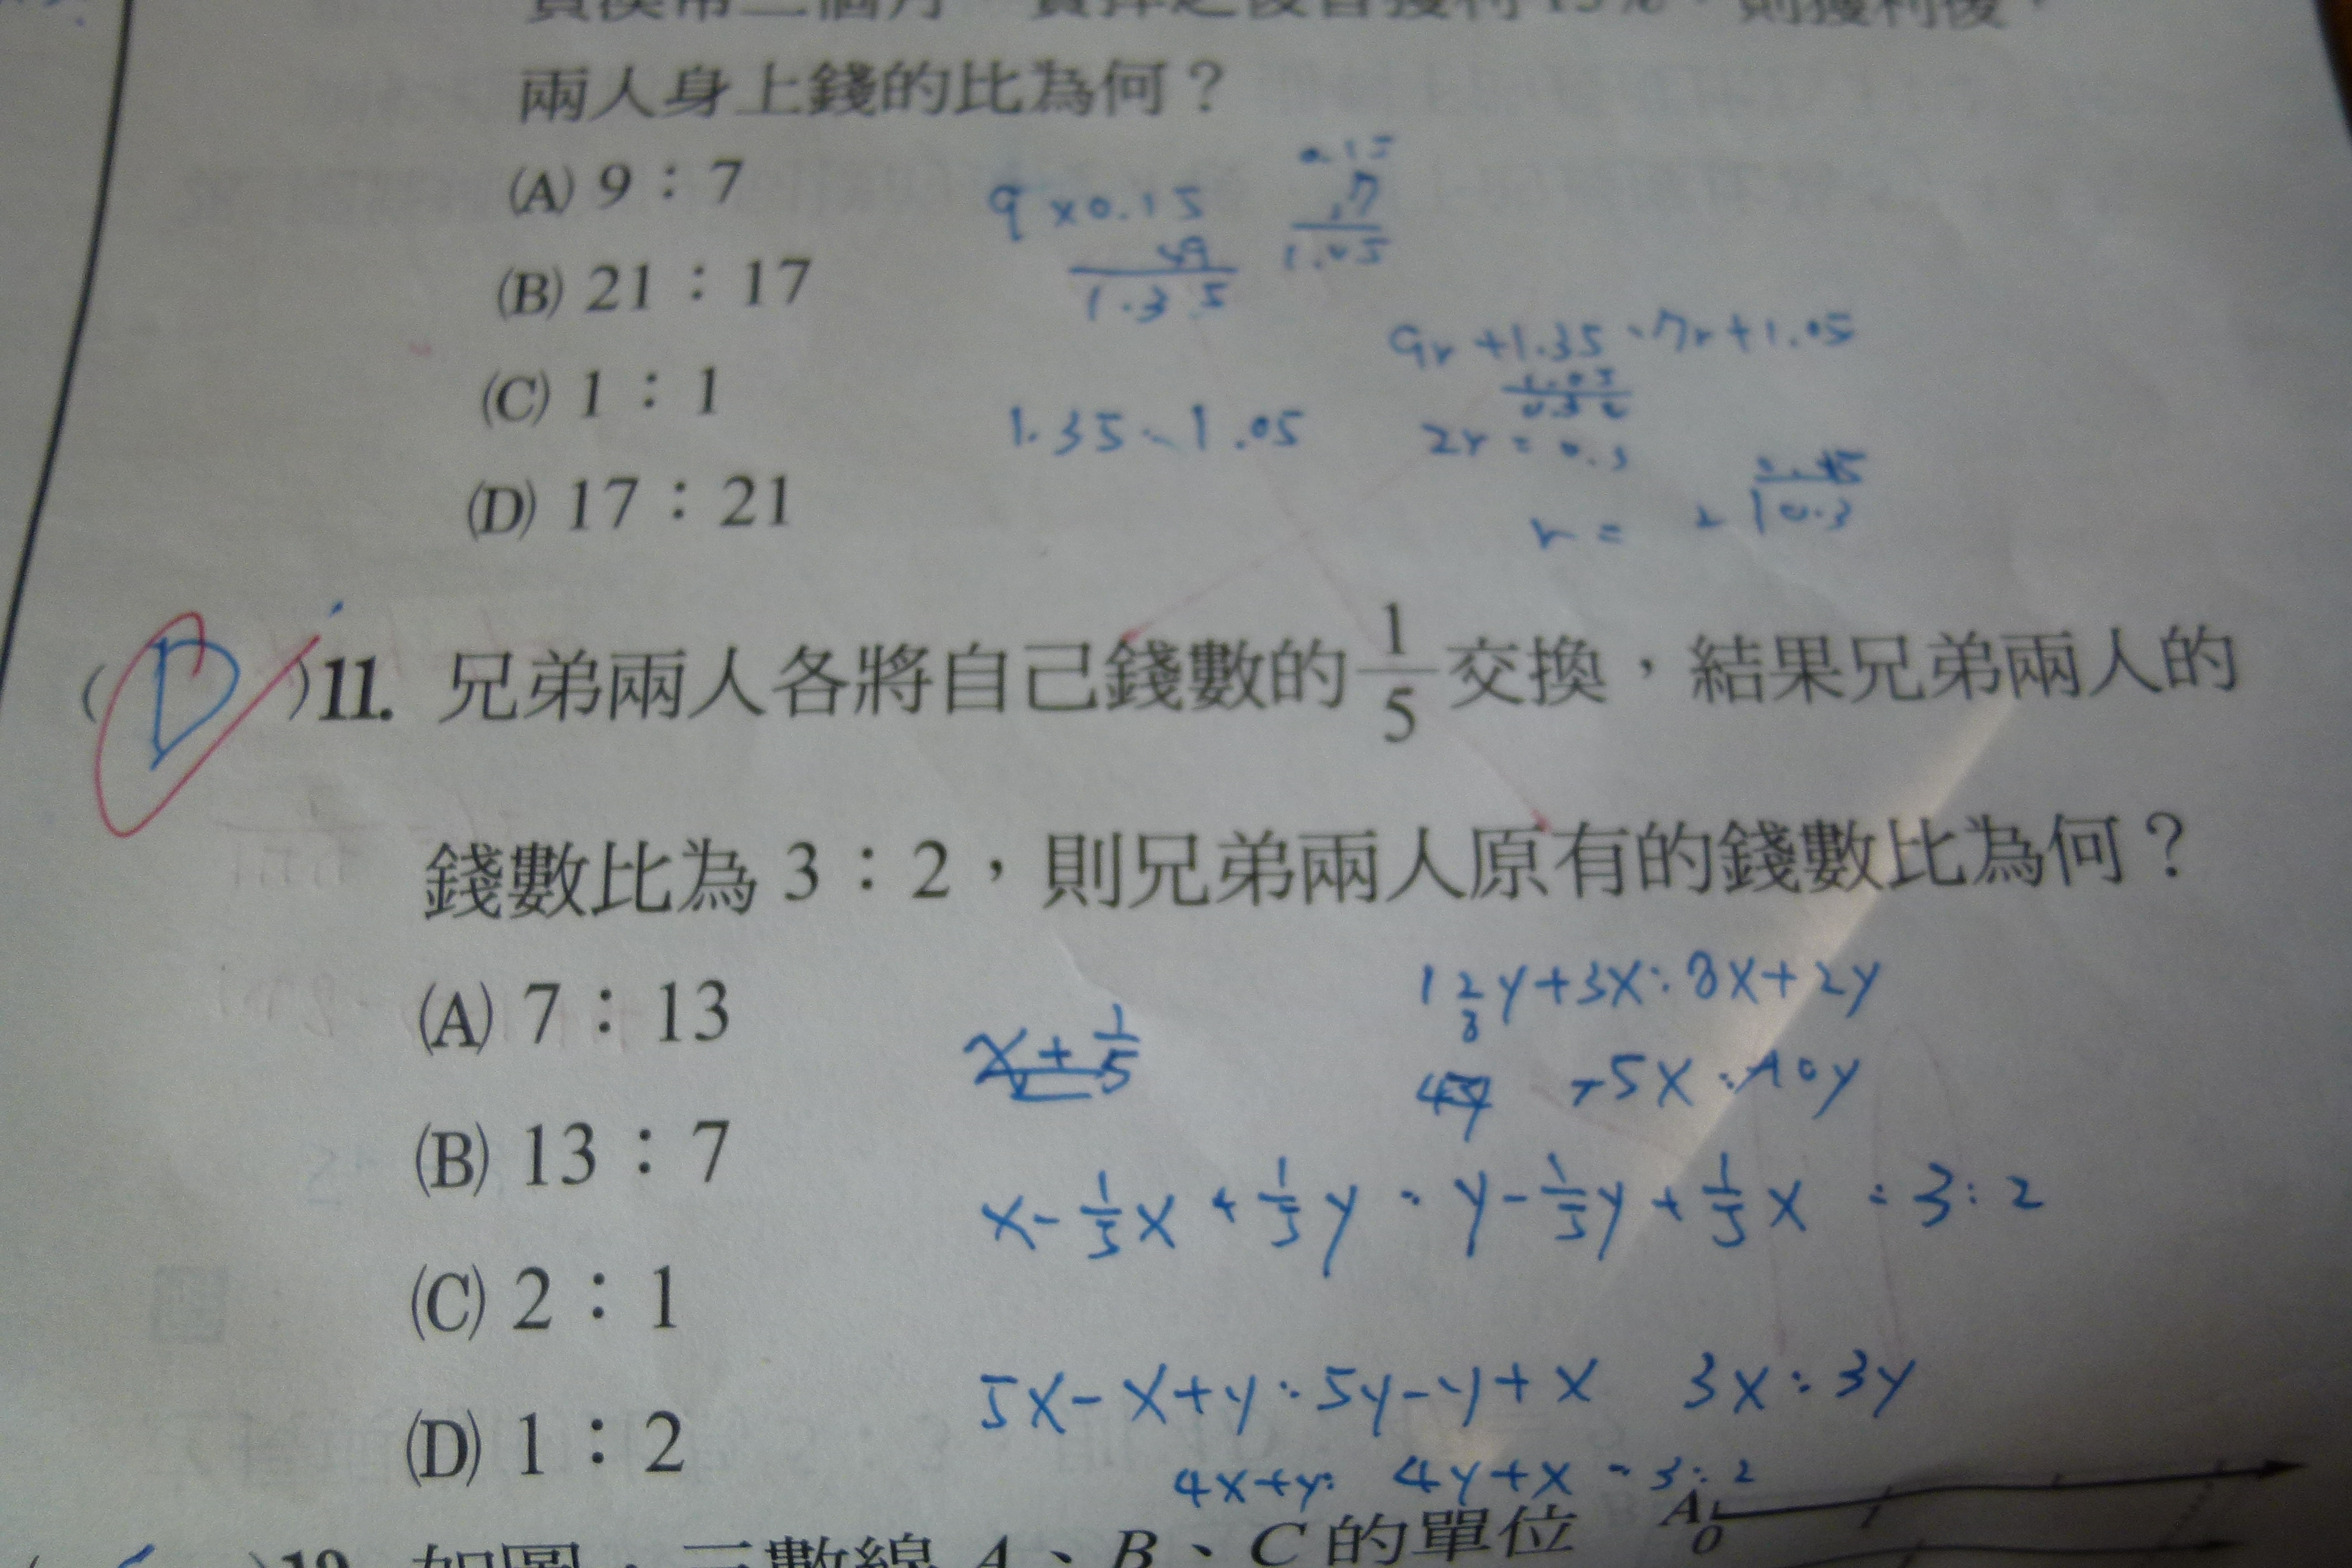 兩人身上錢的比為何？
(A) 9：7
9 × 0.15
×9
1.35
0.15
7
1.05
(B) 21：17
9r + 1.35 : 7r + 1.05
(C) 1：1
1.35 : 1.05
2r = 0.3
(D) 17：21
r =
2 0.3
( D )11. 兄弟兩人各將自己錢數的 1/5 交換，結果兄弟兩人的
錢數比為 3：2，則兄弟兩人原有的錢數比為何？
(A) 7：13
x + 1/5
(B) 13：7
x - 1/5 x + 1/5 y : y - 1/5 y + 1/5 x = 3 : 2
(C) 2：1
5x - x + y : 5y - y + x 3x : 3y
(D) 1：2
4x + y : 4y + x = 3 : 2
如圖，三數線 A、B、C 的單位
A
0